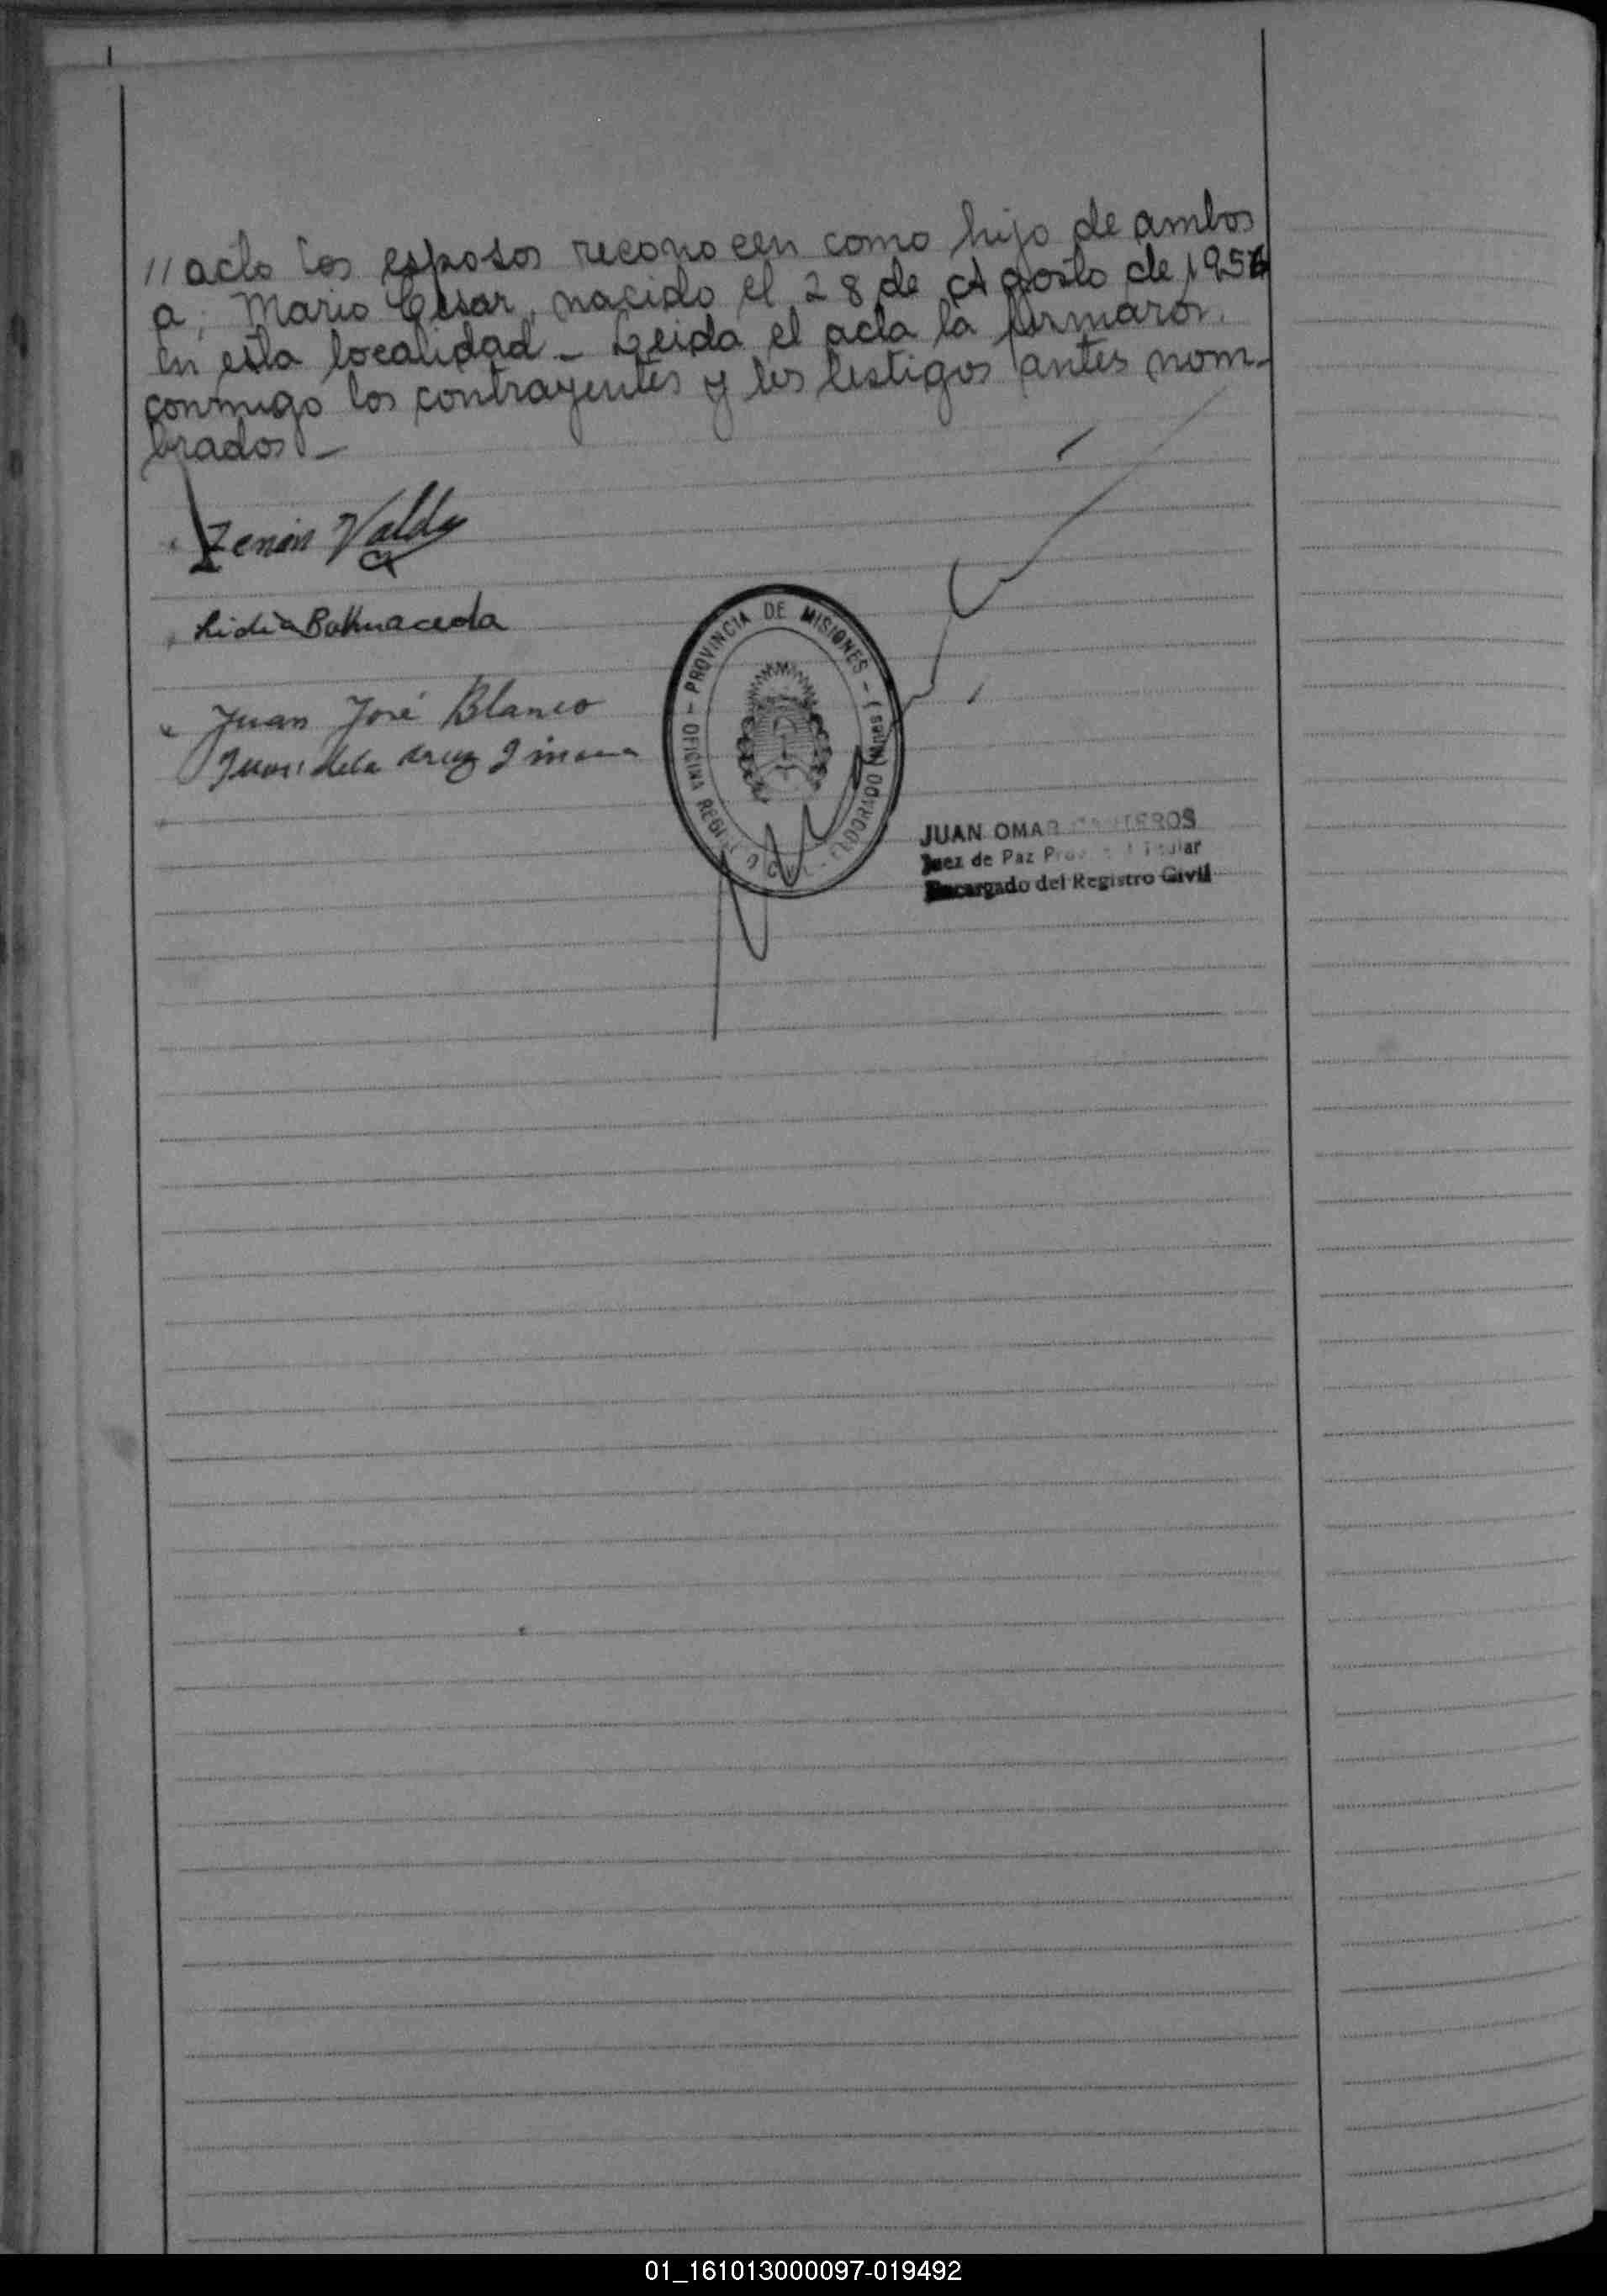 // acto los esposos reconocen como hijo de ambos
a; Mario Cesar, nacido el 28 de Agosto de 195
en esta localidad - Leida el acta la firmaron
conmigo los contrayentes y los testigos antes nom-
brados -
Zenón
Lidia
Juan José Blanco
Juan de la Cruz
OFICINA REGIST CIVIL - PROVINCIA DE MISIONES - ELDORADO (Mnes)
JUAN OMAR
Juez de Paz Titular
Encargado del Registro Civil
01_161013000097-019492